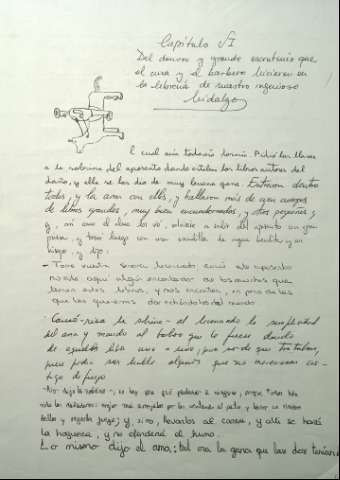 Capítulo VI
Del donoso y grande escrutinio que
el cura y el barbero hicieron en
la librería de nuestro ingenioso
hidalgo
el cual aún todavía dormía. Pidió las llaves
a la sobrina del aposento donde estaban los libros autores del
daño, y ella se las dio de muy buena gana. Entraron dentro
todos, y la ama con ellos, y hallaron más de cien cuerpos
de libros grandes, muy bien encuadernados, y otros pequeños;
y, así como el ama los vio, volvióse a salir del aposento con gran
priesa, y tornó luego con una escudilla de agua bendita y un
hisopo, y dijo:
- Tome vuestra merced, señor
no esté aquí algún encantador de los muchos que
tienen estos libros, y nos encanten, en pena de las
que les queremos dar echándolos del mundo
- Causó risa al licenciado la simplicidad
del ama y mandó al barbero que le fuese dando
de aquellos libros uno a uno, para ver de que trataban,
pues podía ser hallar algunos que no mereciesen cas-
tigo de fuego
- No -dijo la sobrina-, no hay para qué perdonar a ninguno, porque todos han
sido los dañadores: mejor será arrojarlos por las ventanas al patio y hacer un rimero
dellos y pegarles fuego; y, si no, llevarlos al corral, y allí se hará
la hoguera, y no ofenderá el humo.
Lo mismo dijo el ama: tal era la gana que las dos tenían